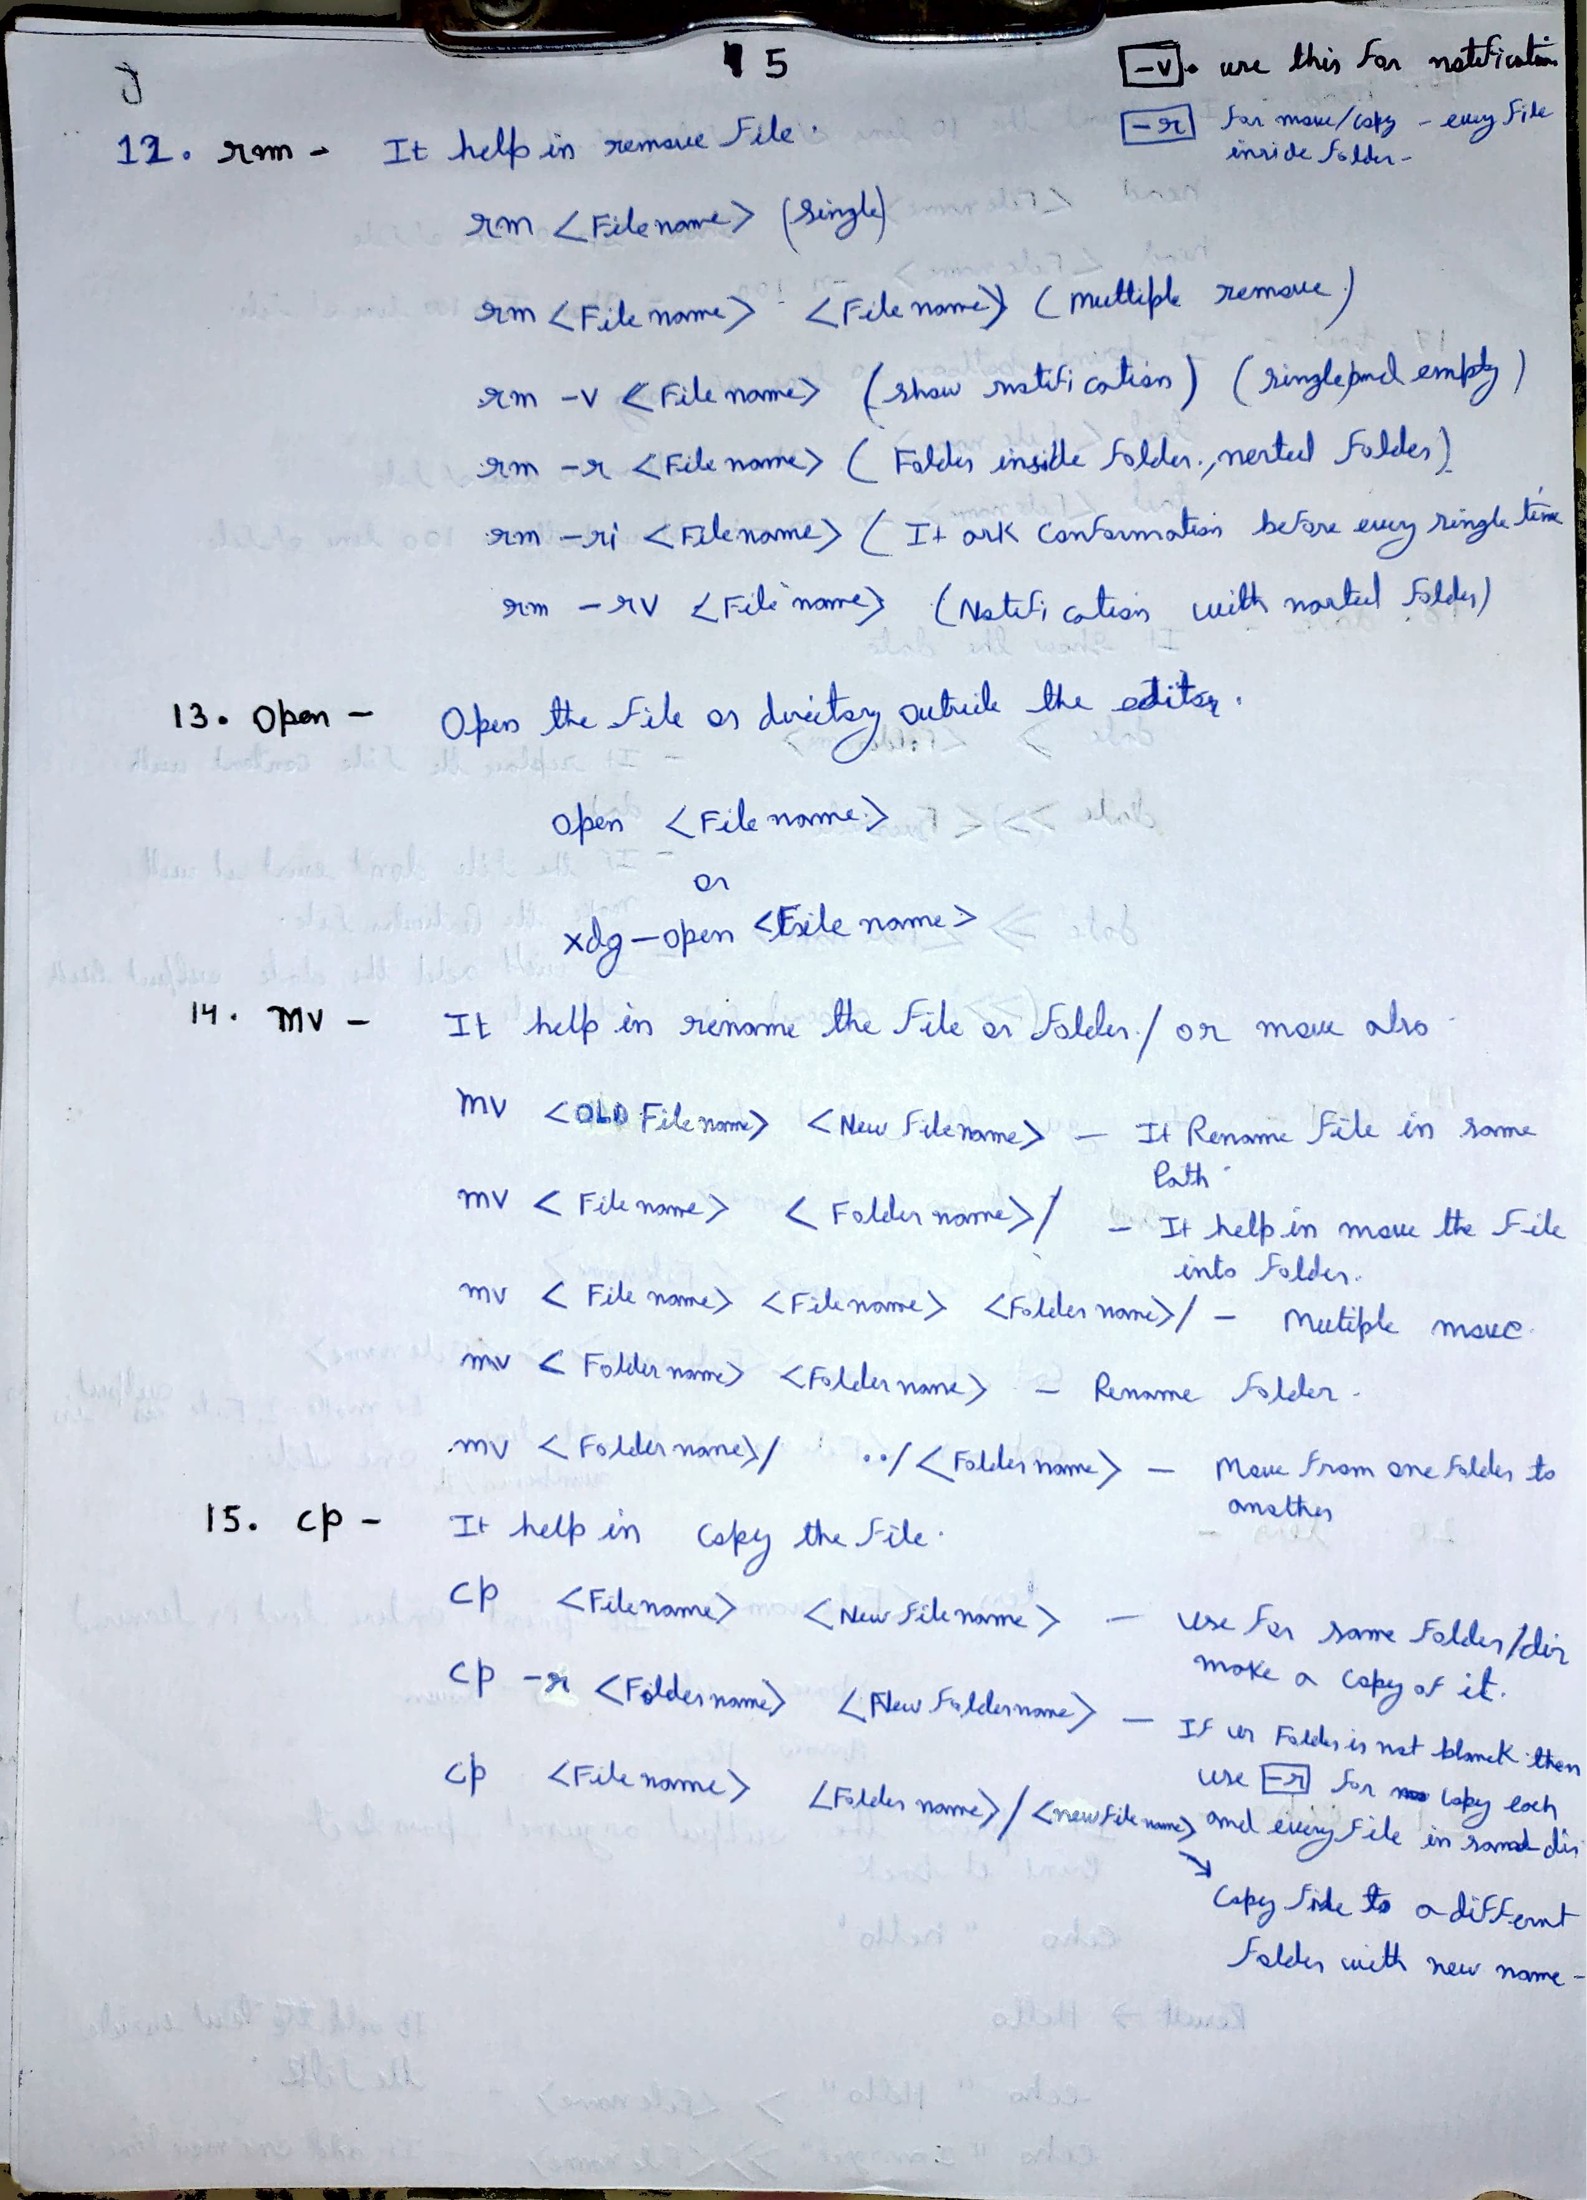 5
-v • use this for notification
-r for move/copy - every file
inside folder -
12. rm - It help in remove file.
rm <File name> (single)
rm <File name> <File name> (multiple remove)
rm -v <File name> (show notification) (single and empty)
rm -r <File name> (Folder inside folder, nested folder)
rm -ri <File name> (It ask conformation before every single time
rm -rv <File name> (Notification with nasted folder)
13. open - Open the file or directory outside the editor.
open <File name>
or
xdg-open <File name>
14. mv - It help in rename the file or folder / or move also
mv <OLD File name> <New File name> - It Rename file in same
Path.
mv <File name> <Folder name>/ - It help in move the file
into folder.
mv <File name> <File name> <Folder name>/ - Multiple move.
mv <Folder name> <Folder name> - Rename folder -
mv <Folder name>/ ../<Folder name> - Move from one folder to
another
15. cp - It help in copy the file.
cp <File name> <New file name> - use for same folder/dir
make a copy of it.
cp -r <Folder name> <New folder name> - If ur Folder is not blanck then
use -r for copy each
and every file in dir
cp <File name> <Folder name>/<new file name>
→ Copy file to a differnt
folder with new name -